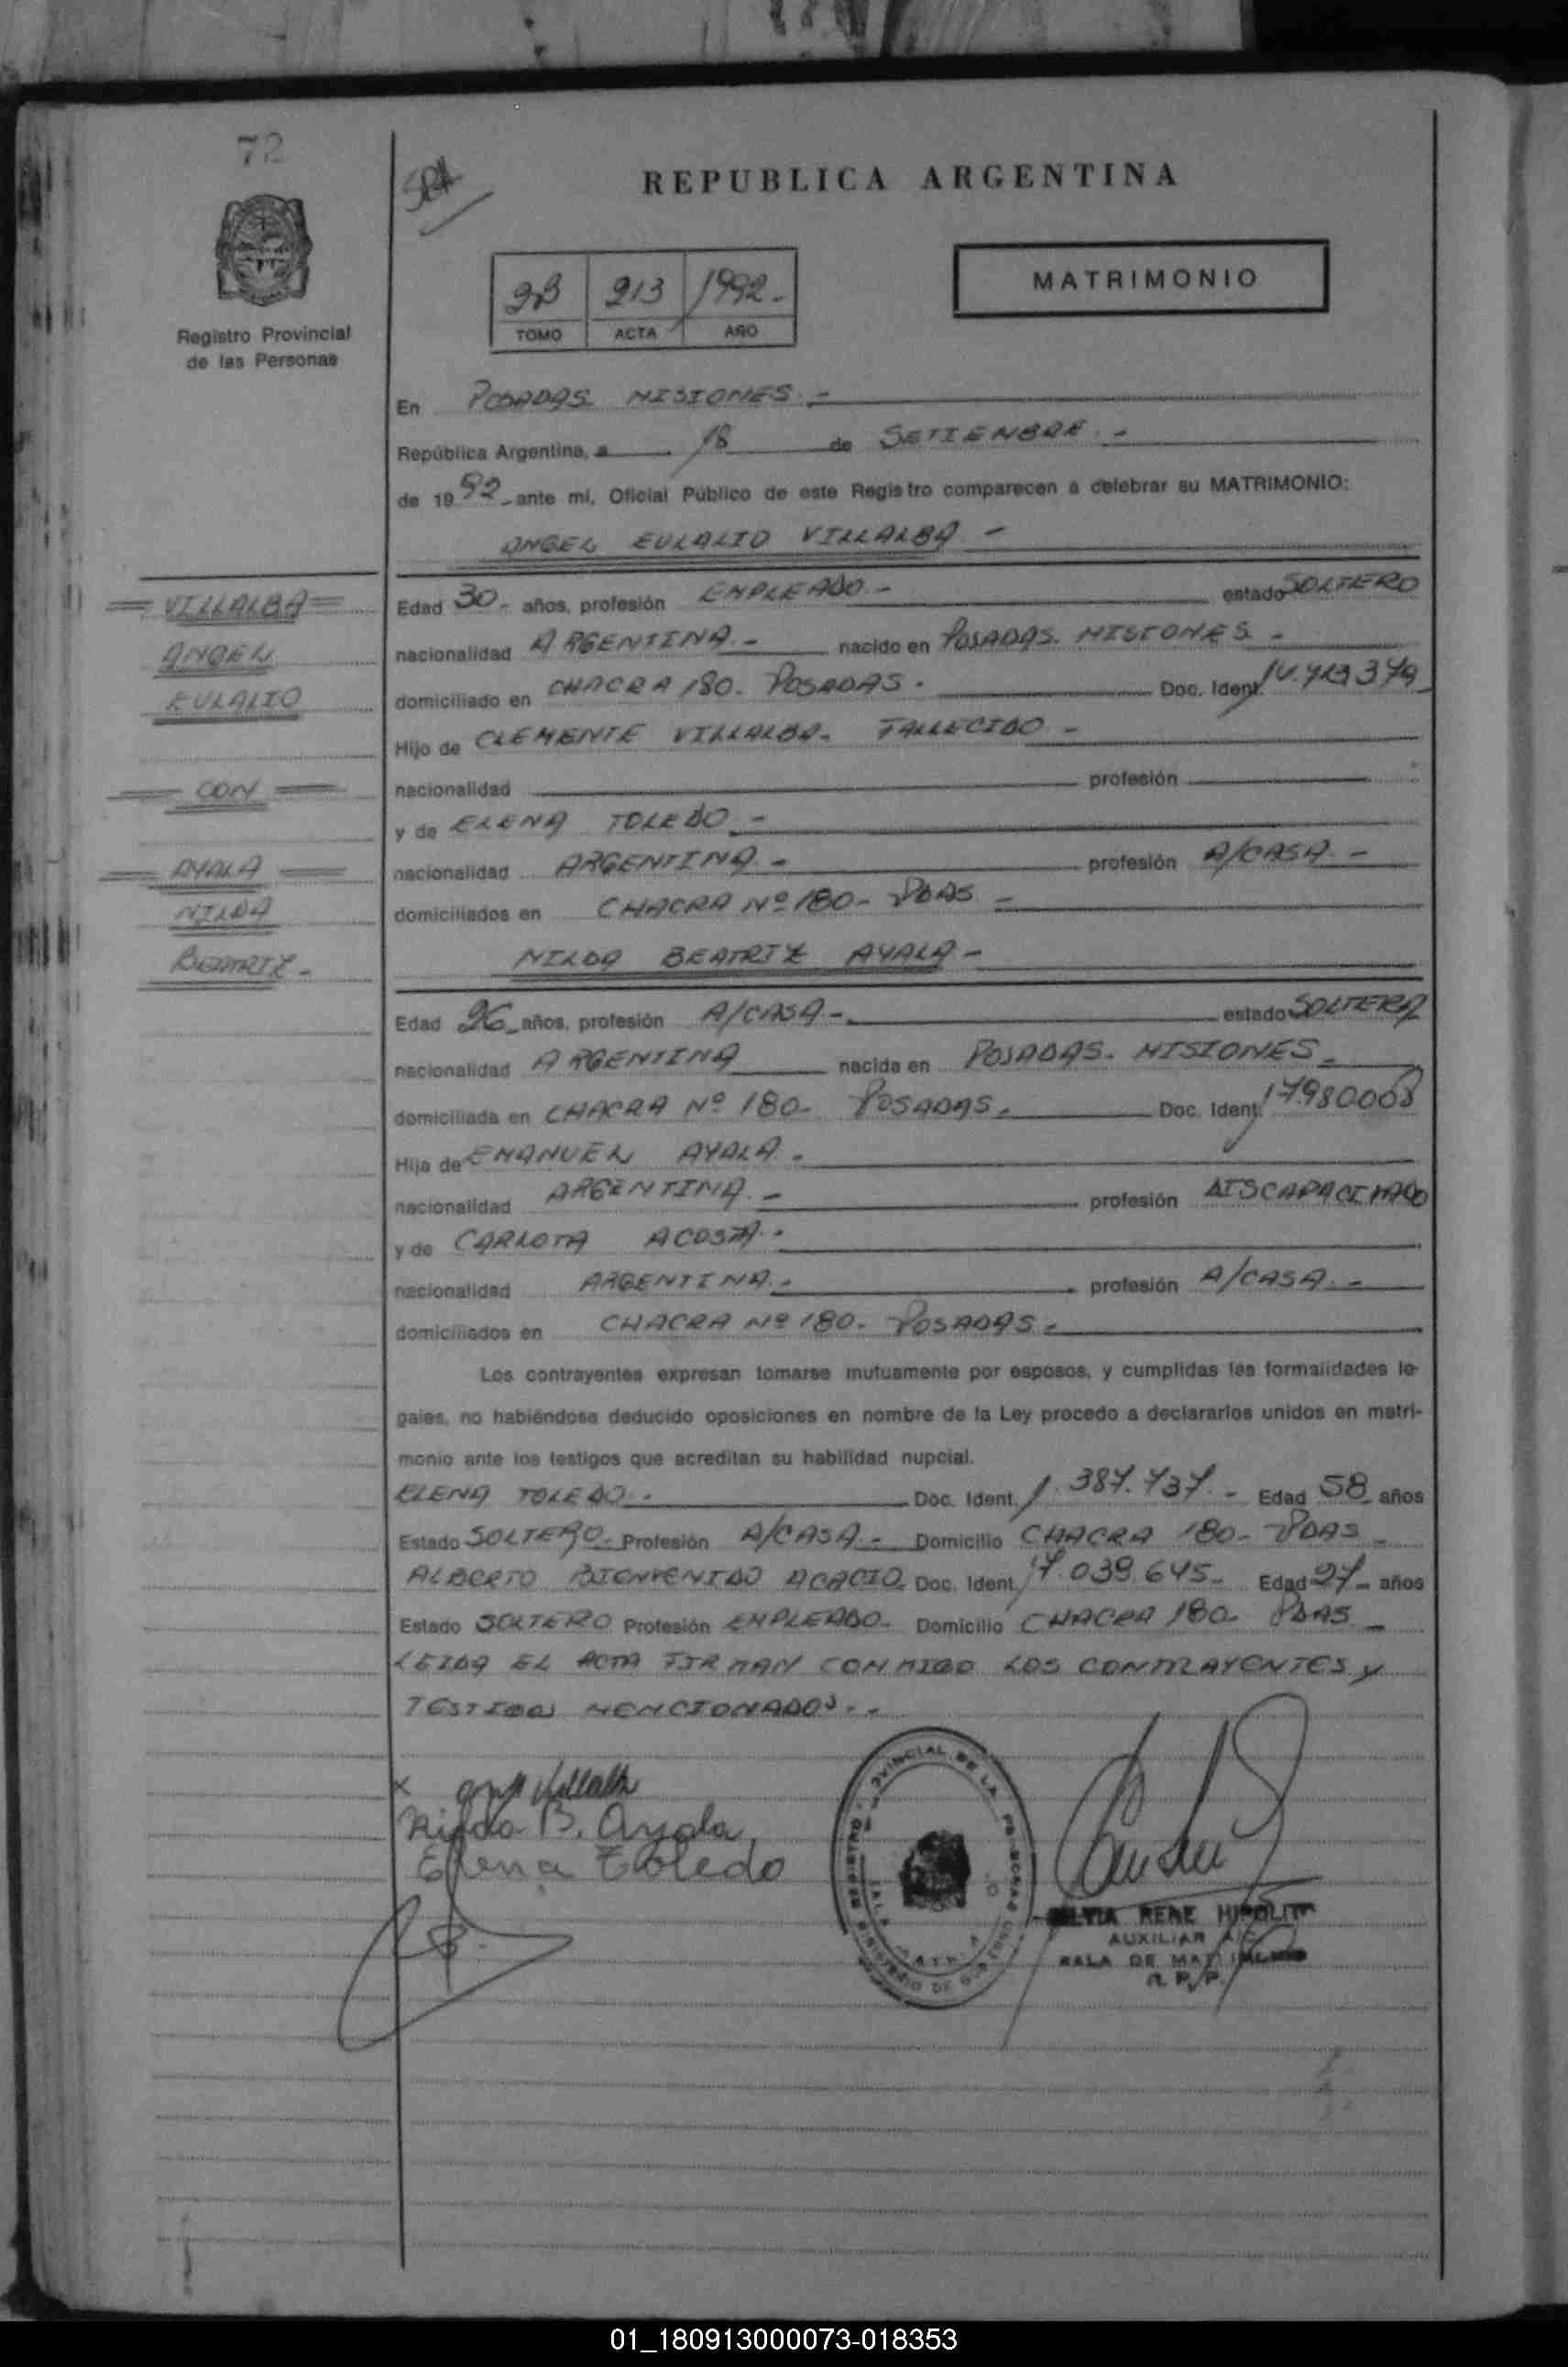 72
REPUBLICA ARGENTINA
2B 213 1992.-
TOMO ACTA AÑO
MATRIMONIO
Registro Provincial
de las Personas
En POSADAS MISIONES.-
República Argentina, a 18 de SETIEMBRE.-
de 1992.- ante mí, Oficial Público de este Registro comparecen a celebrar su MATRIMONIO:
ANGEL EULALIO VILLALBA -
VILLALBA
ANGEL
EULALIO
CON
AYALA
NILDA
BEATRIZ.-
Edad 30.- años, profesión EMPLEADO.- estado SOLTERO
nacionalidad ARGENTINA.- nacido en POSADAS. MISIONES.-
domiciliado en CHACRA 180. POSADAS. Doc. Ident.
Hijo de CLEMENTE VILLALBA. FALLECIDO -
nacionalidad profesión
y de ELENA TOLEDO.-
nacionalidad ARGENTINA.- profesión A/CASA.-
domiciliados en CHACRA Nº 180- PDAS -
NILDA BEATRIZ AYALA-
Edad 26 años, profesión A/CASA-. estado SOLTERA
nacionalidad ARGENTINA nacida en POSADAS. MISIONES.
domiciliada en CHACRA Nº 180- POSADAS. Doc. Ident. 17980008
Hija de EMANUEL AYALA.
nacionalidad ARGENTINA.- profesión DISCAPACITADO
y de CARLOTA ACOSTA.-
nacionalidad ARGENTINA.- profesión A/CASA.-
domiciliados en CHACRA Nº 180. POSADAS.
Los contrayentes expresan tomarse mutuamente por esposos, y cumplidas las formalidades le-
gales, no habiéndose deducido oposiciones en nombre de la Ley procedo a declararlos unidos en matri-
monio ante los testigos que acreditan su habilidad nupcial.
ELENA TOLEDO.- Doc. Ident. 1.387.737.- Edad 58 años
Estado SOLTERO. Profesión A/CASA.- Domicilio CHACRA 180- PDAS -
ALBERTO BIENVENIDO ACACIO. Doc. Ident. 17.039.645- Edad 27- años
Estado SOLTERO Profesión EMPLEADO. Domicilio CHACRA 180. PDAS -
LEIDA EL ACTA FIRMAN CONMIGO LOS CONTRAYENTES y
TESTIGOS MENCIONADOS.-
Villalba
Nilda B. Ayala
Elena Toledo
RENE HIPOLIT
AUXILIAR
SALA DE
R. P. P.
01_180913000073-018353